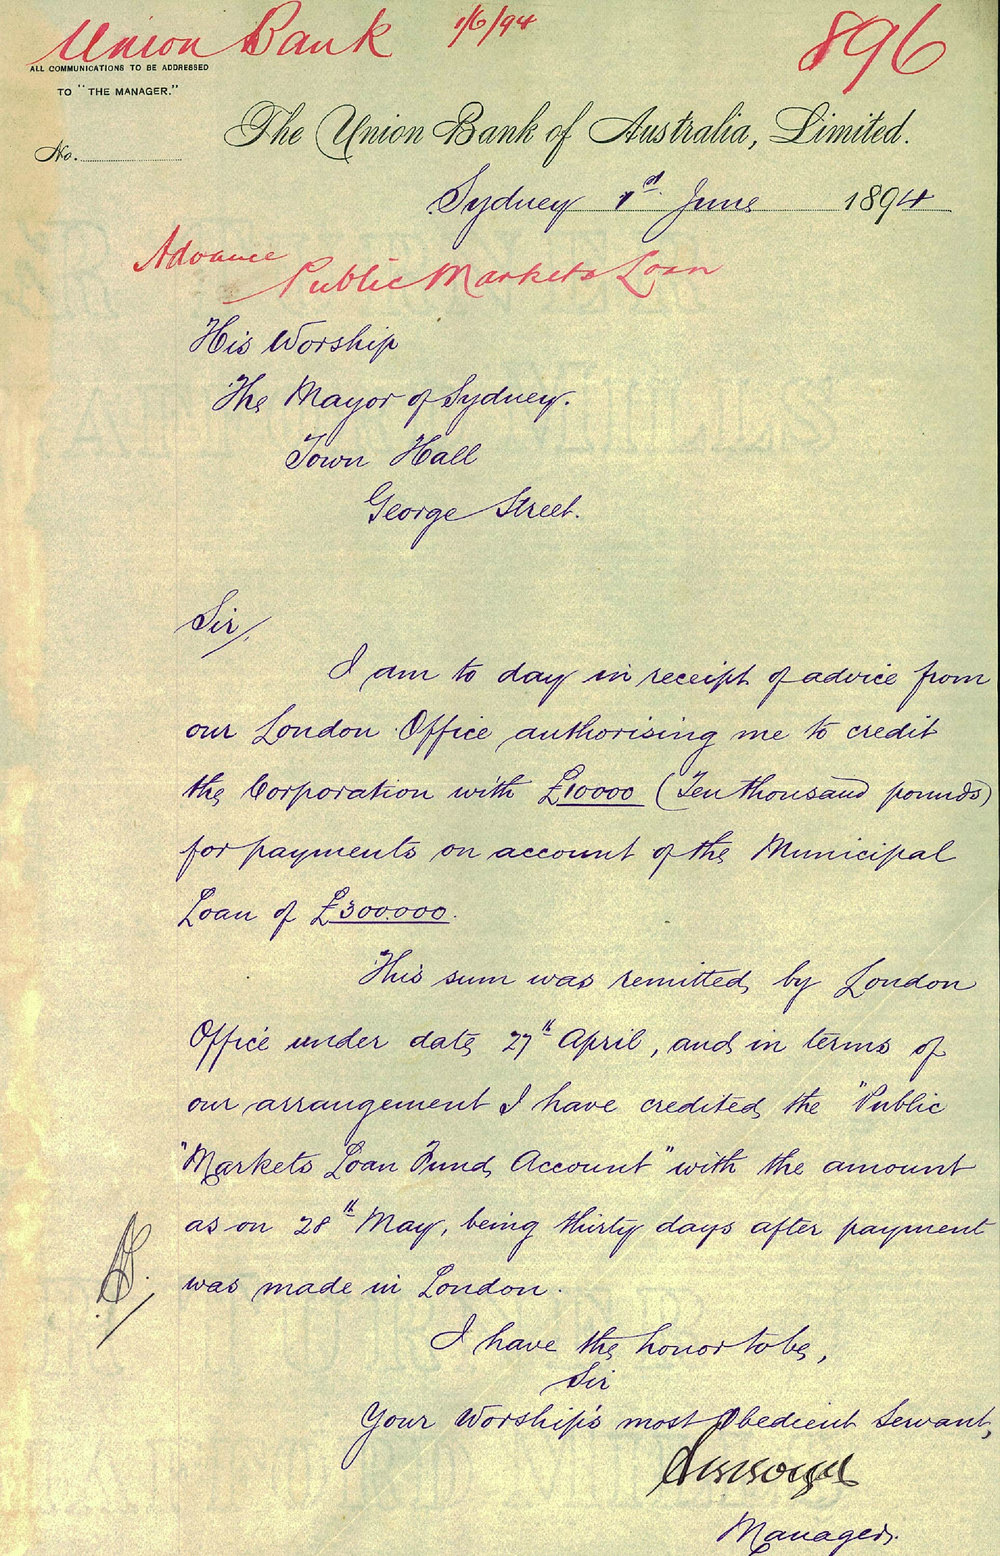 Union Bank 1/6/94 896
ALL COMMUNICATIONS TO BE ADDRESSED
TO "THE MANAGER."
The Union Bank of Australia, Limited.
No.
Sydney 1st June 1894
Advance
Public Markets Loan
His Worship
The Mayor of Sydney.
Town Hall
George Street.
Sir,
I am to day in receipt of advice from
our London Office authorising me to credit
the Corporation with £10000 (Ten thousand pounds)
for payments on account of the Municipal
Loan of £300.000.
This sum was remitted by London
Office under date 27th April, and in terms of
our arrangement I have credited the "Public
"Markets Loan Fund Account" with the amount
as on 28th May, being thirty days after payment
was made in London.
I have the honor to be,
Sir
Your Worship's most Obedient Servant,
Manager.